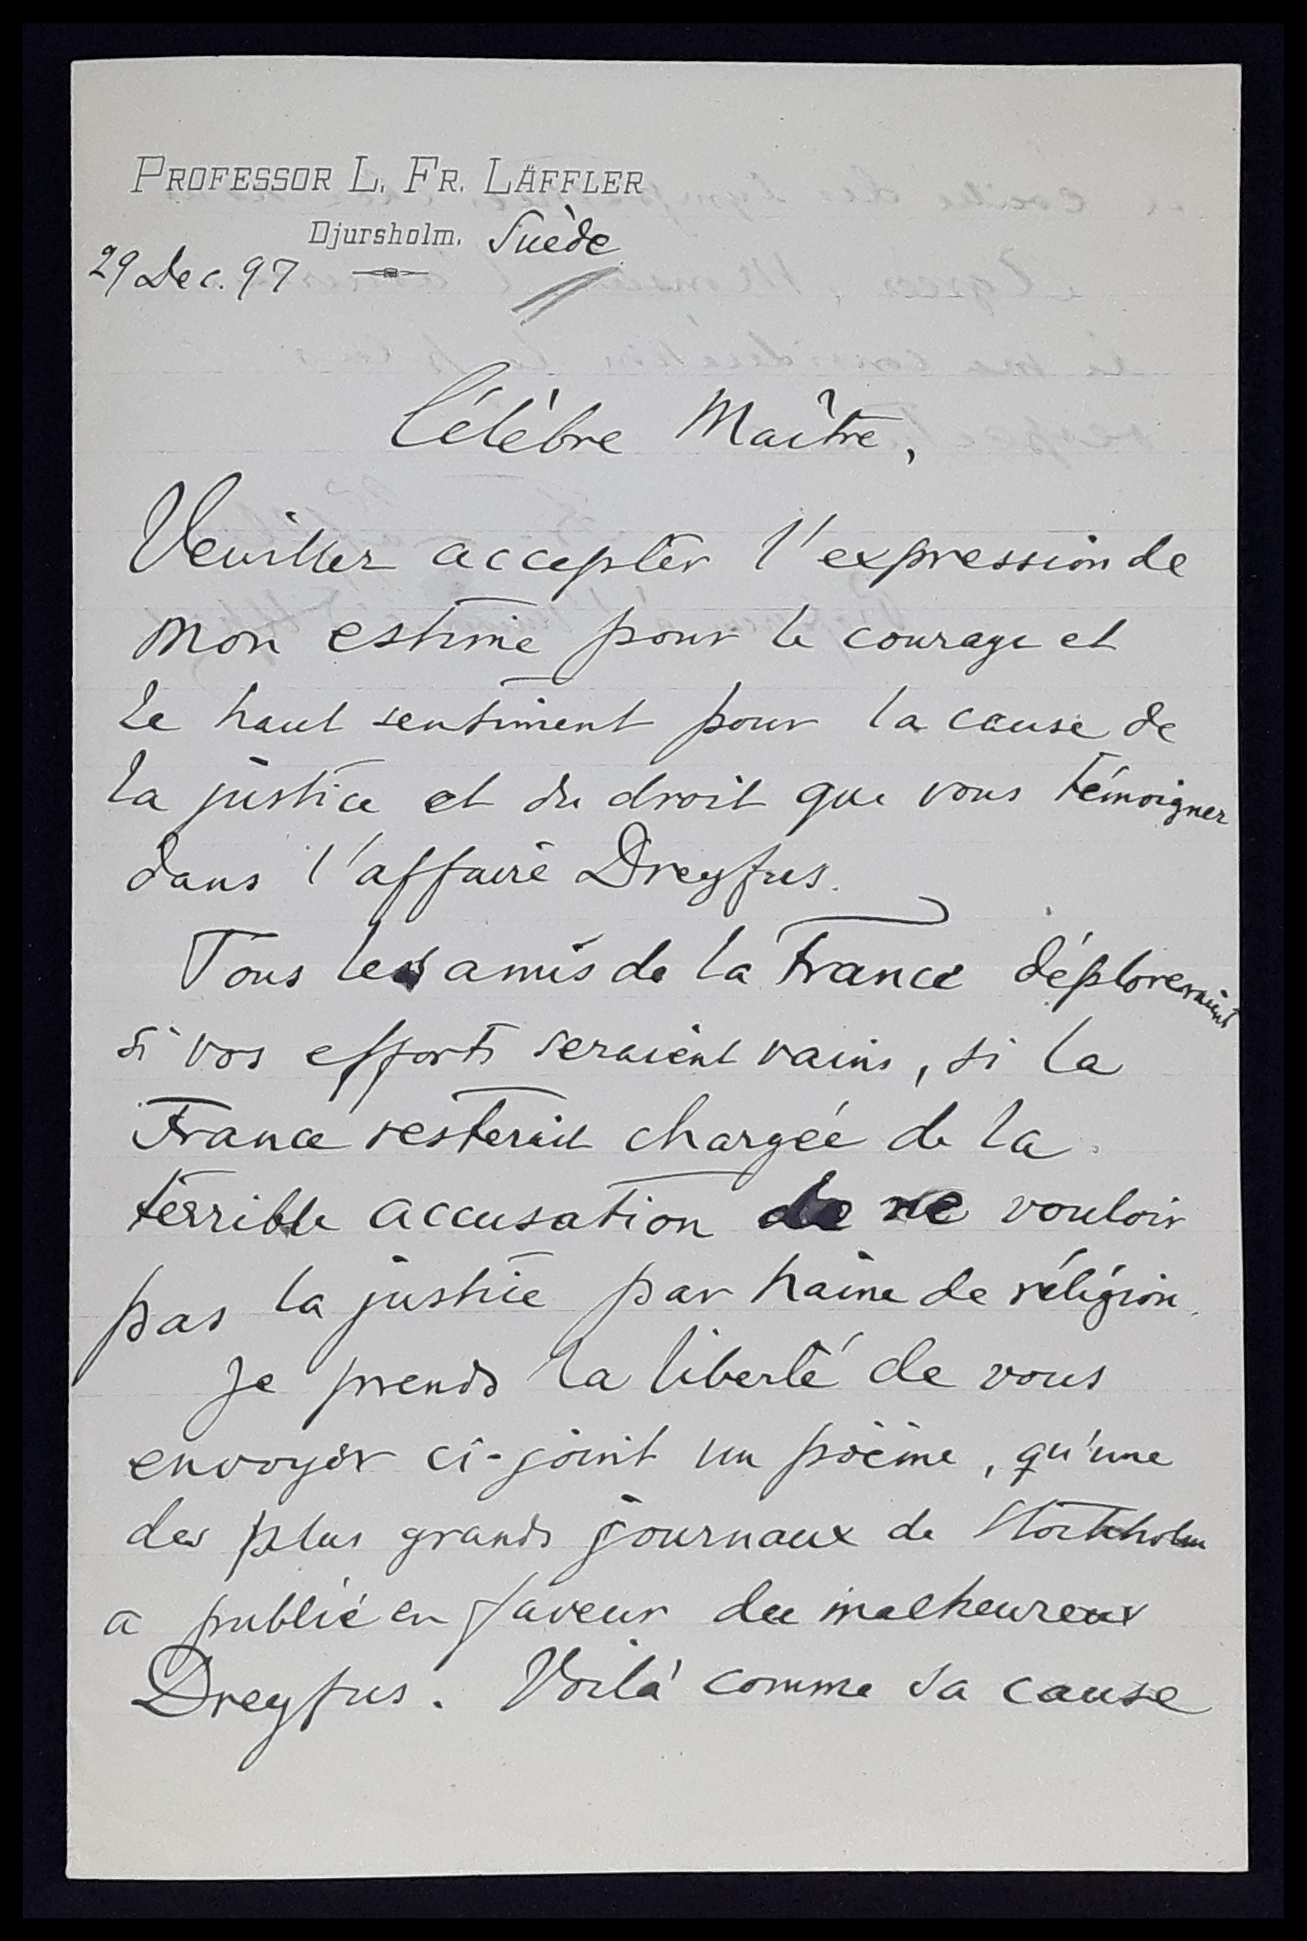 PROFESSOR L. FR. LÄFFLER
Djursholm. Suède
29 Dec. 97
Célèbre Maître,
Veuillez accepter l'expression de
mon estime pour le courage et
le haut sentiment pour la cause de
la justice et du droit que vous témoignez
dans l'affaire Dreyfus.
Tous les amis de la France déploreraient
si vos efforts seraient vains, si la
France resterait chargée de la
terrible accusation de ne vouloir
pas la justice par haine de réligion.
Je prends la liberté de vous
envoyer ci-joint un poëme, qu'une
des plus grands journaux de Stockholm
a publié en faveur du malheureux
Dreyfus. Voilà comme sa cause